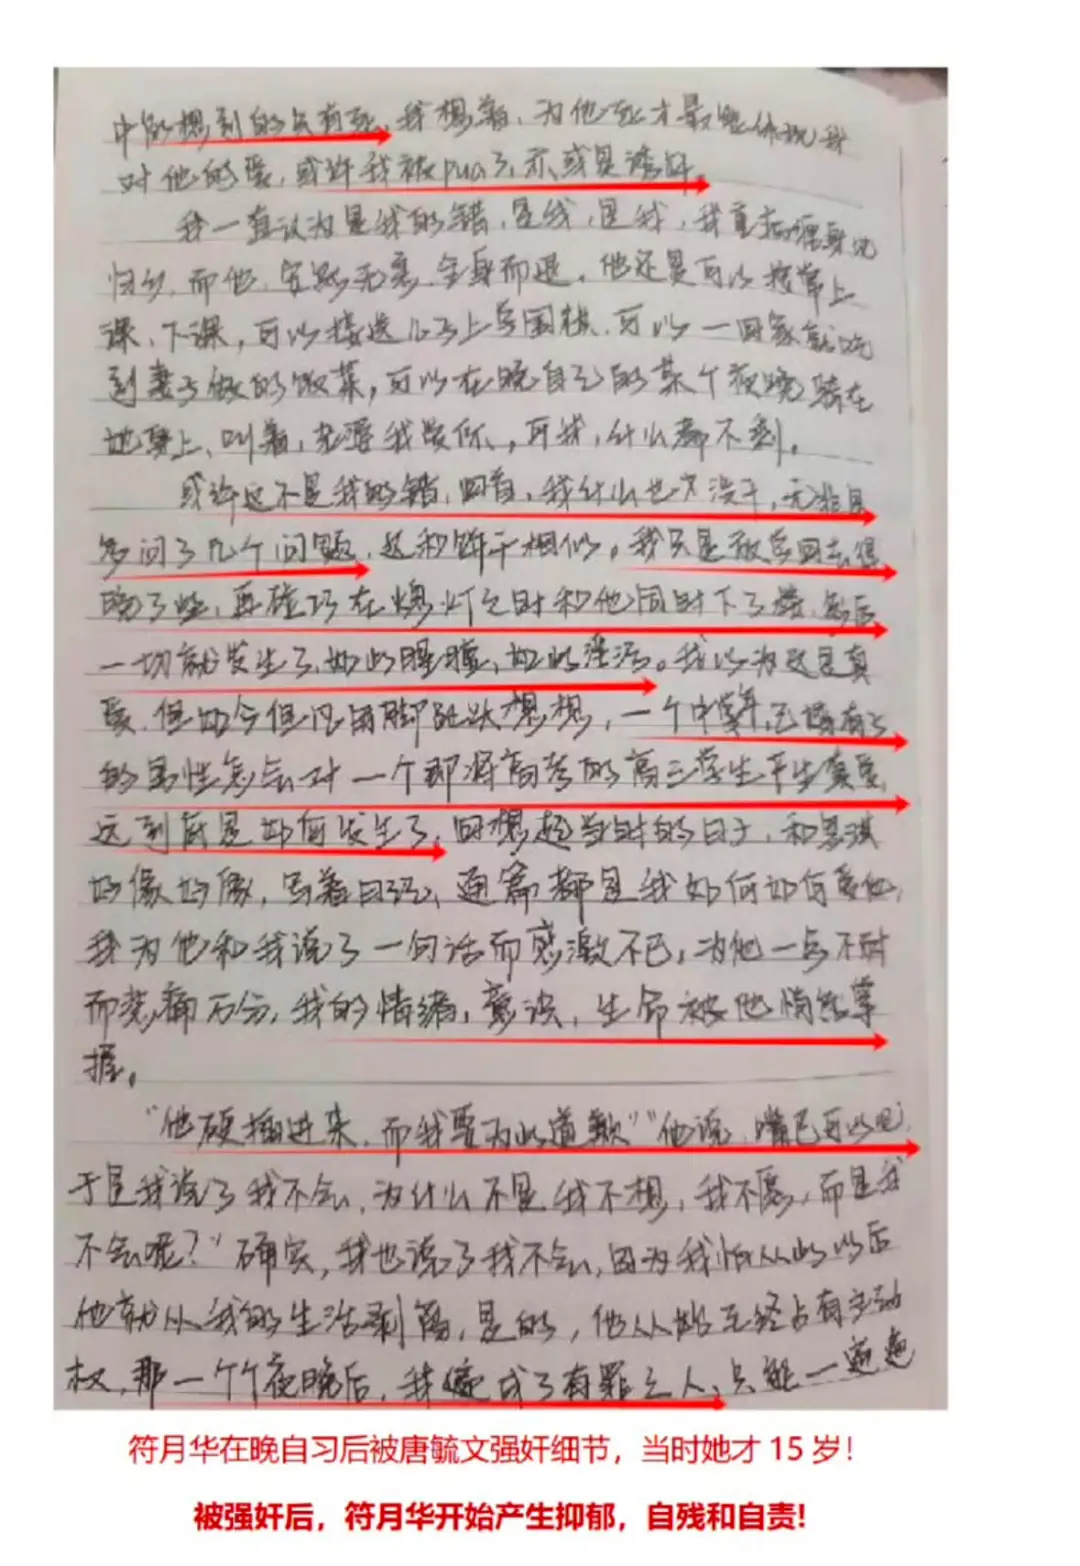 中能想到的只有死，我想着，为他死才最能体现我
对他的爱，或许我被pua了，亦或是诱奸。
我一直认为是我的错，是我，是我，我
归乡，而他，安然无恙，全身而退，他还是可以接常上
课、下课，可以接送儿子上学围棋，可以一回家就吃
到妻子做的饭菜，可以在晚自习的某个夜晚骑在
她身上，叫着，老婆我爱你，可我，什么都不剩。
或许这不是我的错，回首，我什么也没干，无非是
多问了几个问题，这和饼干相似。我只是放学回去得
晚了些，再碰巧在熄灯之时和他同时下了楼，然后
一切就发生了，如此腥膻，如此淫活。我以为这是真
爱，但如今但凡用脚趾头想想，一个中年已婚有子
的男性怎会对一个即将高考的高三学生产生真爱，
这到底是如何发生了，回想起当时的日子，和思琪
好像好像，写着日记，通篇都是我如何如何爱他，
我为他和我说了一句话而感激不已，为他一点不耐
而悲痛万分，我的情绪，意识，生命被他悄然掌
握。
“他硬插进来，而我要为此道歉”“他说，嘴巴可以吧，
于是我说了我不会，为什么不是我不想，我不愿，而是我
不会呢？”确实，我也说了我不会，因为我怕从此以后
他就从我的生活剥离，是的，他从始至终占有主动
权，那一个个夜晚后，我便成了有罪之人，只能一遍遍
符月华在晚自习后被唐毓文强奸细节，当时她才 15 岁！
被强奸后，符月华开始产生抑郁，自残和自责！